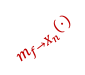 m_{f→x_n}(·)